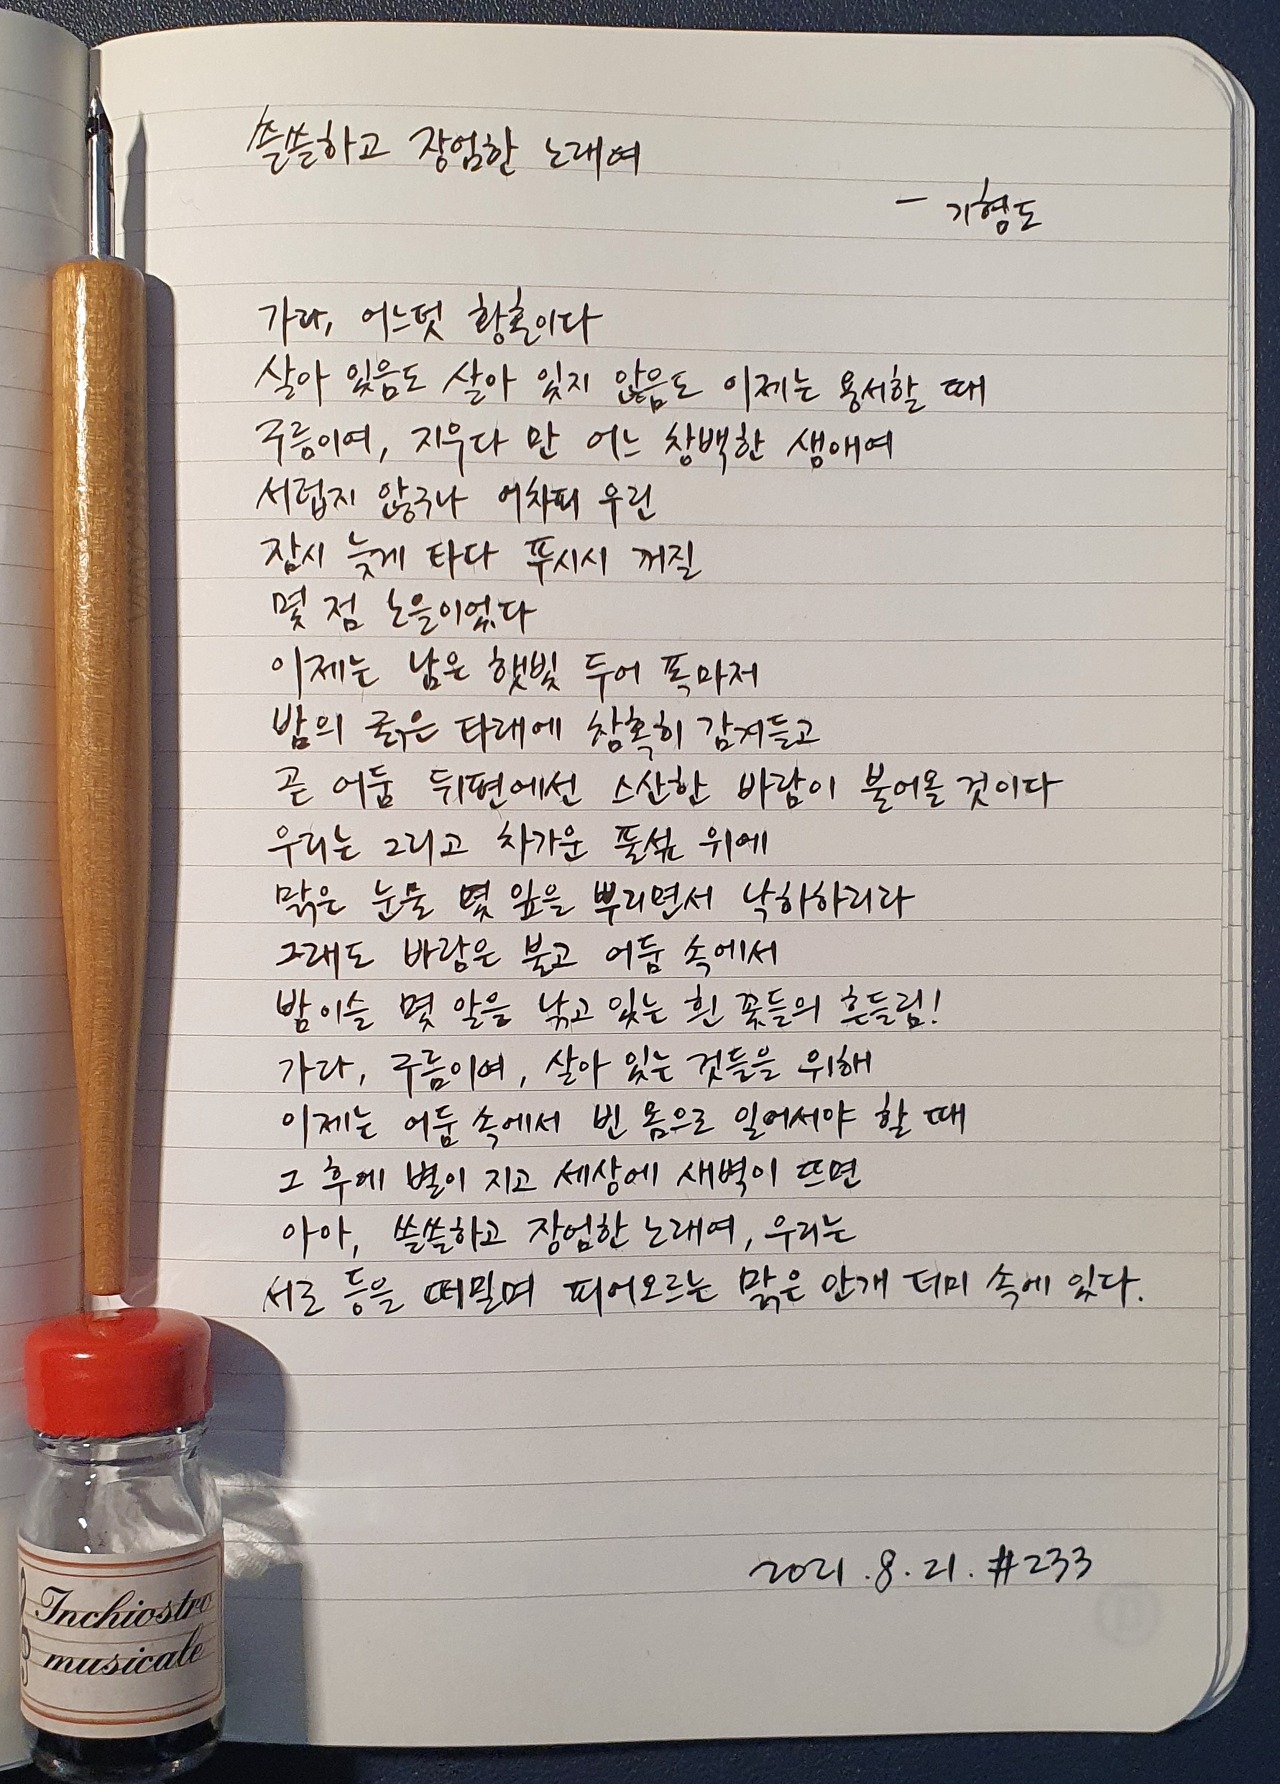 쓸쓸하고 장엄한 노래여
- 기형도
가라, 어느덧 황혼이다
살아 있음도 살아 있지 않음도 이제는 용서할 때
구름이여, 지우다 만 어느 창백한 생애여
서럽지 않구나 어차피 우린
잠시 늦게 타다 푸시시 꺼질
몇 점 노을이었다
이제는 남은 햇빛 두어 폭마저
밤의 굵은 타래에 참혹히 감겨들고
곧 어둠 뒤편에선 스산한 바람이 불어올 것이다
우리는 그리고 차가운 풀섶 위에
맑은 눈물 몇 잎을 뿌리면서 낙하하리라
그래도 바람은 불고 어둠 속에서
밤이슬 몇 알을 낚고 있는 흰 꽃들의 흔들림!
가라, 구름이여, 살아 있는 것들을 위해
이제는 어둠 속에서 빈 몸으로 일어서야 할 때
그 후에 별이 지고 세상에 새벽이 뜨면
아아, 쓸쓸하고 장엄한 노래여, 우리는
서로 등을 떠밀며 피어오르는 맑은 안개 더미 속에 있다.
2021.8.21. #233
Inchiostro
musicale